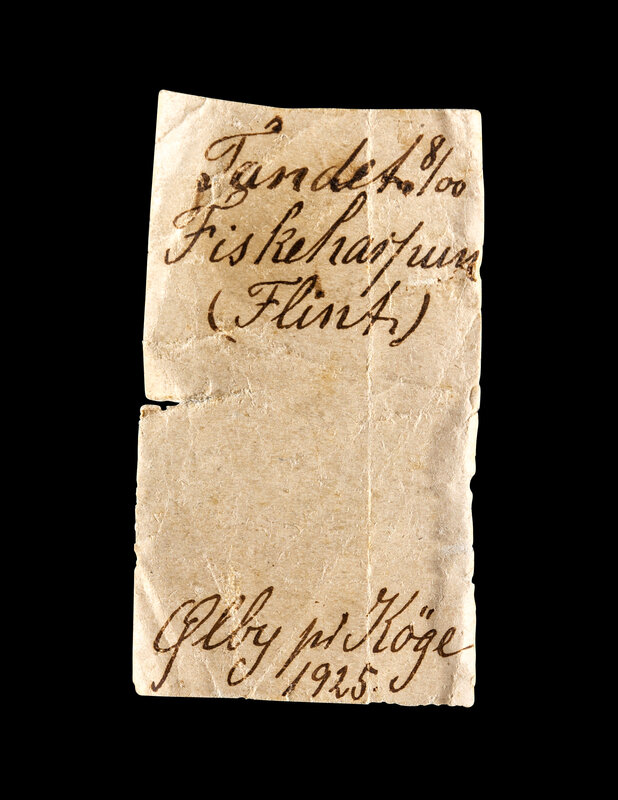 Tandet. 8/00
Fiskeharpun
(Flint.)
Ølby pr Köge
1925.